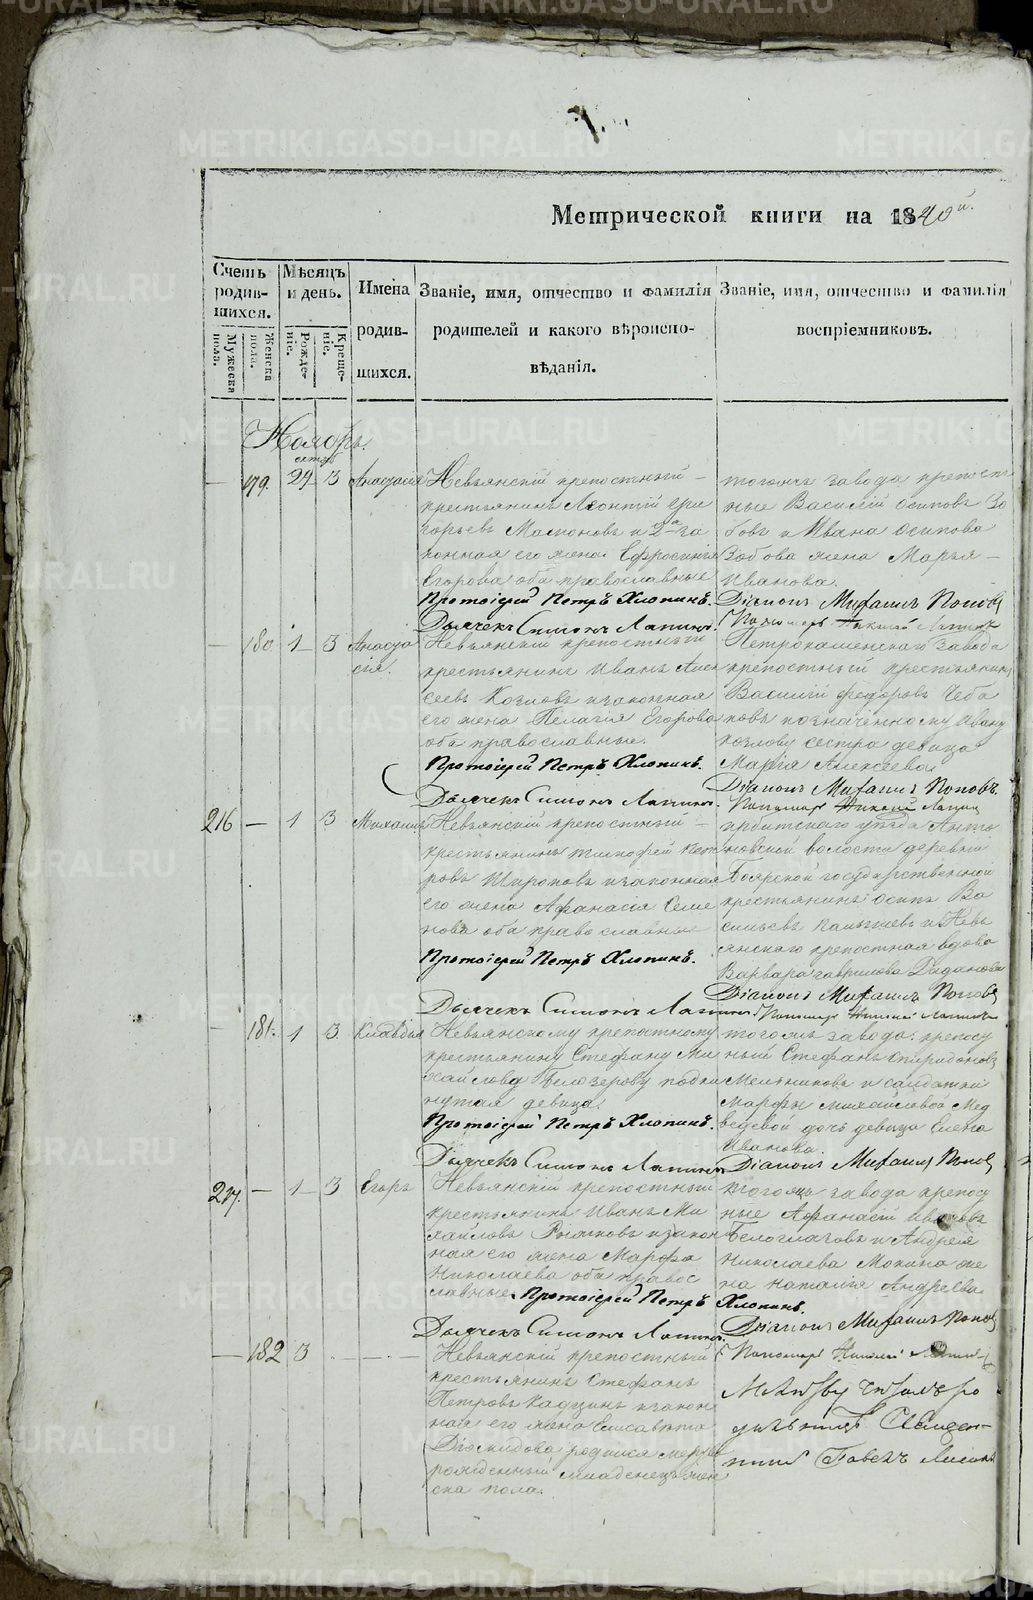 Метрической книги на 1840й.
Счетъ родив-шихся.
Мѣсяцъ и день.
Имена родив-шихся.
Званіе, имя, отчество и фамилія родителей и какого вѣроиспо-вѣданія.
Званіе, имя, отчество и фамилія воспріемниковъ.
Мужеска пола.
Женска пола.
Рожде-ніе.
Креще-ніе.
Ноябрь.
— 179. 29 3
Невьянскій крепостный
крестьянинъ Леонтій Гри
горьевъ Мамоновъ и 2я за
конная его жена Ефросинья
Егорова оба православные
Протоіерей Петръ Хлопинъ.
Дьячекъ Симонъ Лапинъ.
тогожъ завода крепост
ные Василій Осиповъ Зо
бовъ и Ивана Осипова
Зобова жена Марья
Иванова.
Діаконъ Михаилъ Поповъ
Пономарь Николай Лапинъ
— 180 1 3 Анаста
сія.
Невьянскій крепостный
крестьянинъ Иванъ Алек
сеевъ Козловъ и законная
его жена Пелагія Егорова
оба православные.
Протоіерей Петръ Хлопинъ.
Дьячекъ Симонъ Лапинъ.
Петрокаменскаго завода
крепостный крестьянинъ
Василій Федоровъ Чеба
ковъ и означенному Ивану
Козлову сестра девица
Марія Алексеева.
Діаконъ Михаилъ Поповъ.
Пономарь Николай Лапинъ
216 — 1 3 Михаилъ
Невьянскій крепостный
крестьянинъ Тимофей Пет
ровъ Широковъ и законная
его жена Афанасія Семе
нова оба православные
Протоіерей Петръ Хлопинъ.
Дьячекъ Симонъ Лапинъ.
ирбитскаго уезда Анто
новской волости деревни
Боярской государственной
крестьянинъ Осипъ Ва
сильевъ и Невь
янскаго крепостная вдова
Варвара Гаврилова
Діаконъ Михаилъ Поповъ
Пономарь Николай Лапинъ
— 181. 1 3. Клавдія
Невьянскому крепостному
крестьянину Стефану Ми
хайлову Белозерову подки
нутая девица.
Протоіерей Петръ Хлопинъ.
Дьячекъ Симонъ Лапинъ
тогожъ завода крепост
ный Стефанъ Спиридоновъ
Мельниковъ и солдатки
Марфы Михайловой Мед
ведевой дочь девица Елена
Иванова.
Діаконъ Михаилъ Поповъ
217. — 1 3 Егоръ
Невьянскій крепостный
крестьянинъ Иванъ Ми
хайловъ и закон
ная его жена Марфа
Николаева оба правос
лавные. Протоіерей Петръ Хлопинъ.
Дьячекъ Симонъ Лапинъ.
тогожъ завода крепост
ные Афанасій Ивановъ
Белоглазовъ и Андрея
Николаева Мокина же
на Наталія Андреева
Діаконъ Михаилъ Поповъ
Пономарь Николай Лапинъ
— 182 3 — —
Невьянскій крепостный
крестьянинъ Стефанъ
Петровъ и закон
ная его жена Елисавета
Діомидова родился мертво
рожденный младенецъ жен
ска пола.
Молитву читалъ ро
дильнице Священ-
никъ